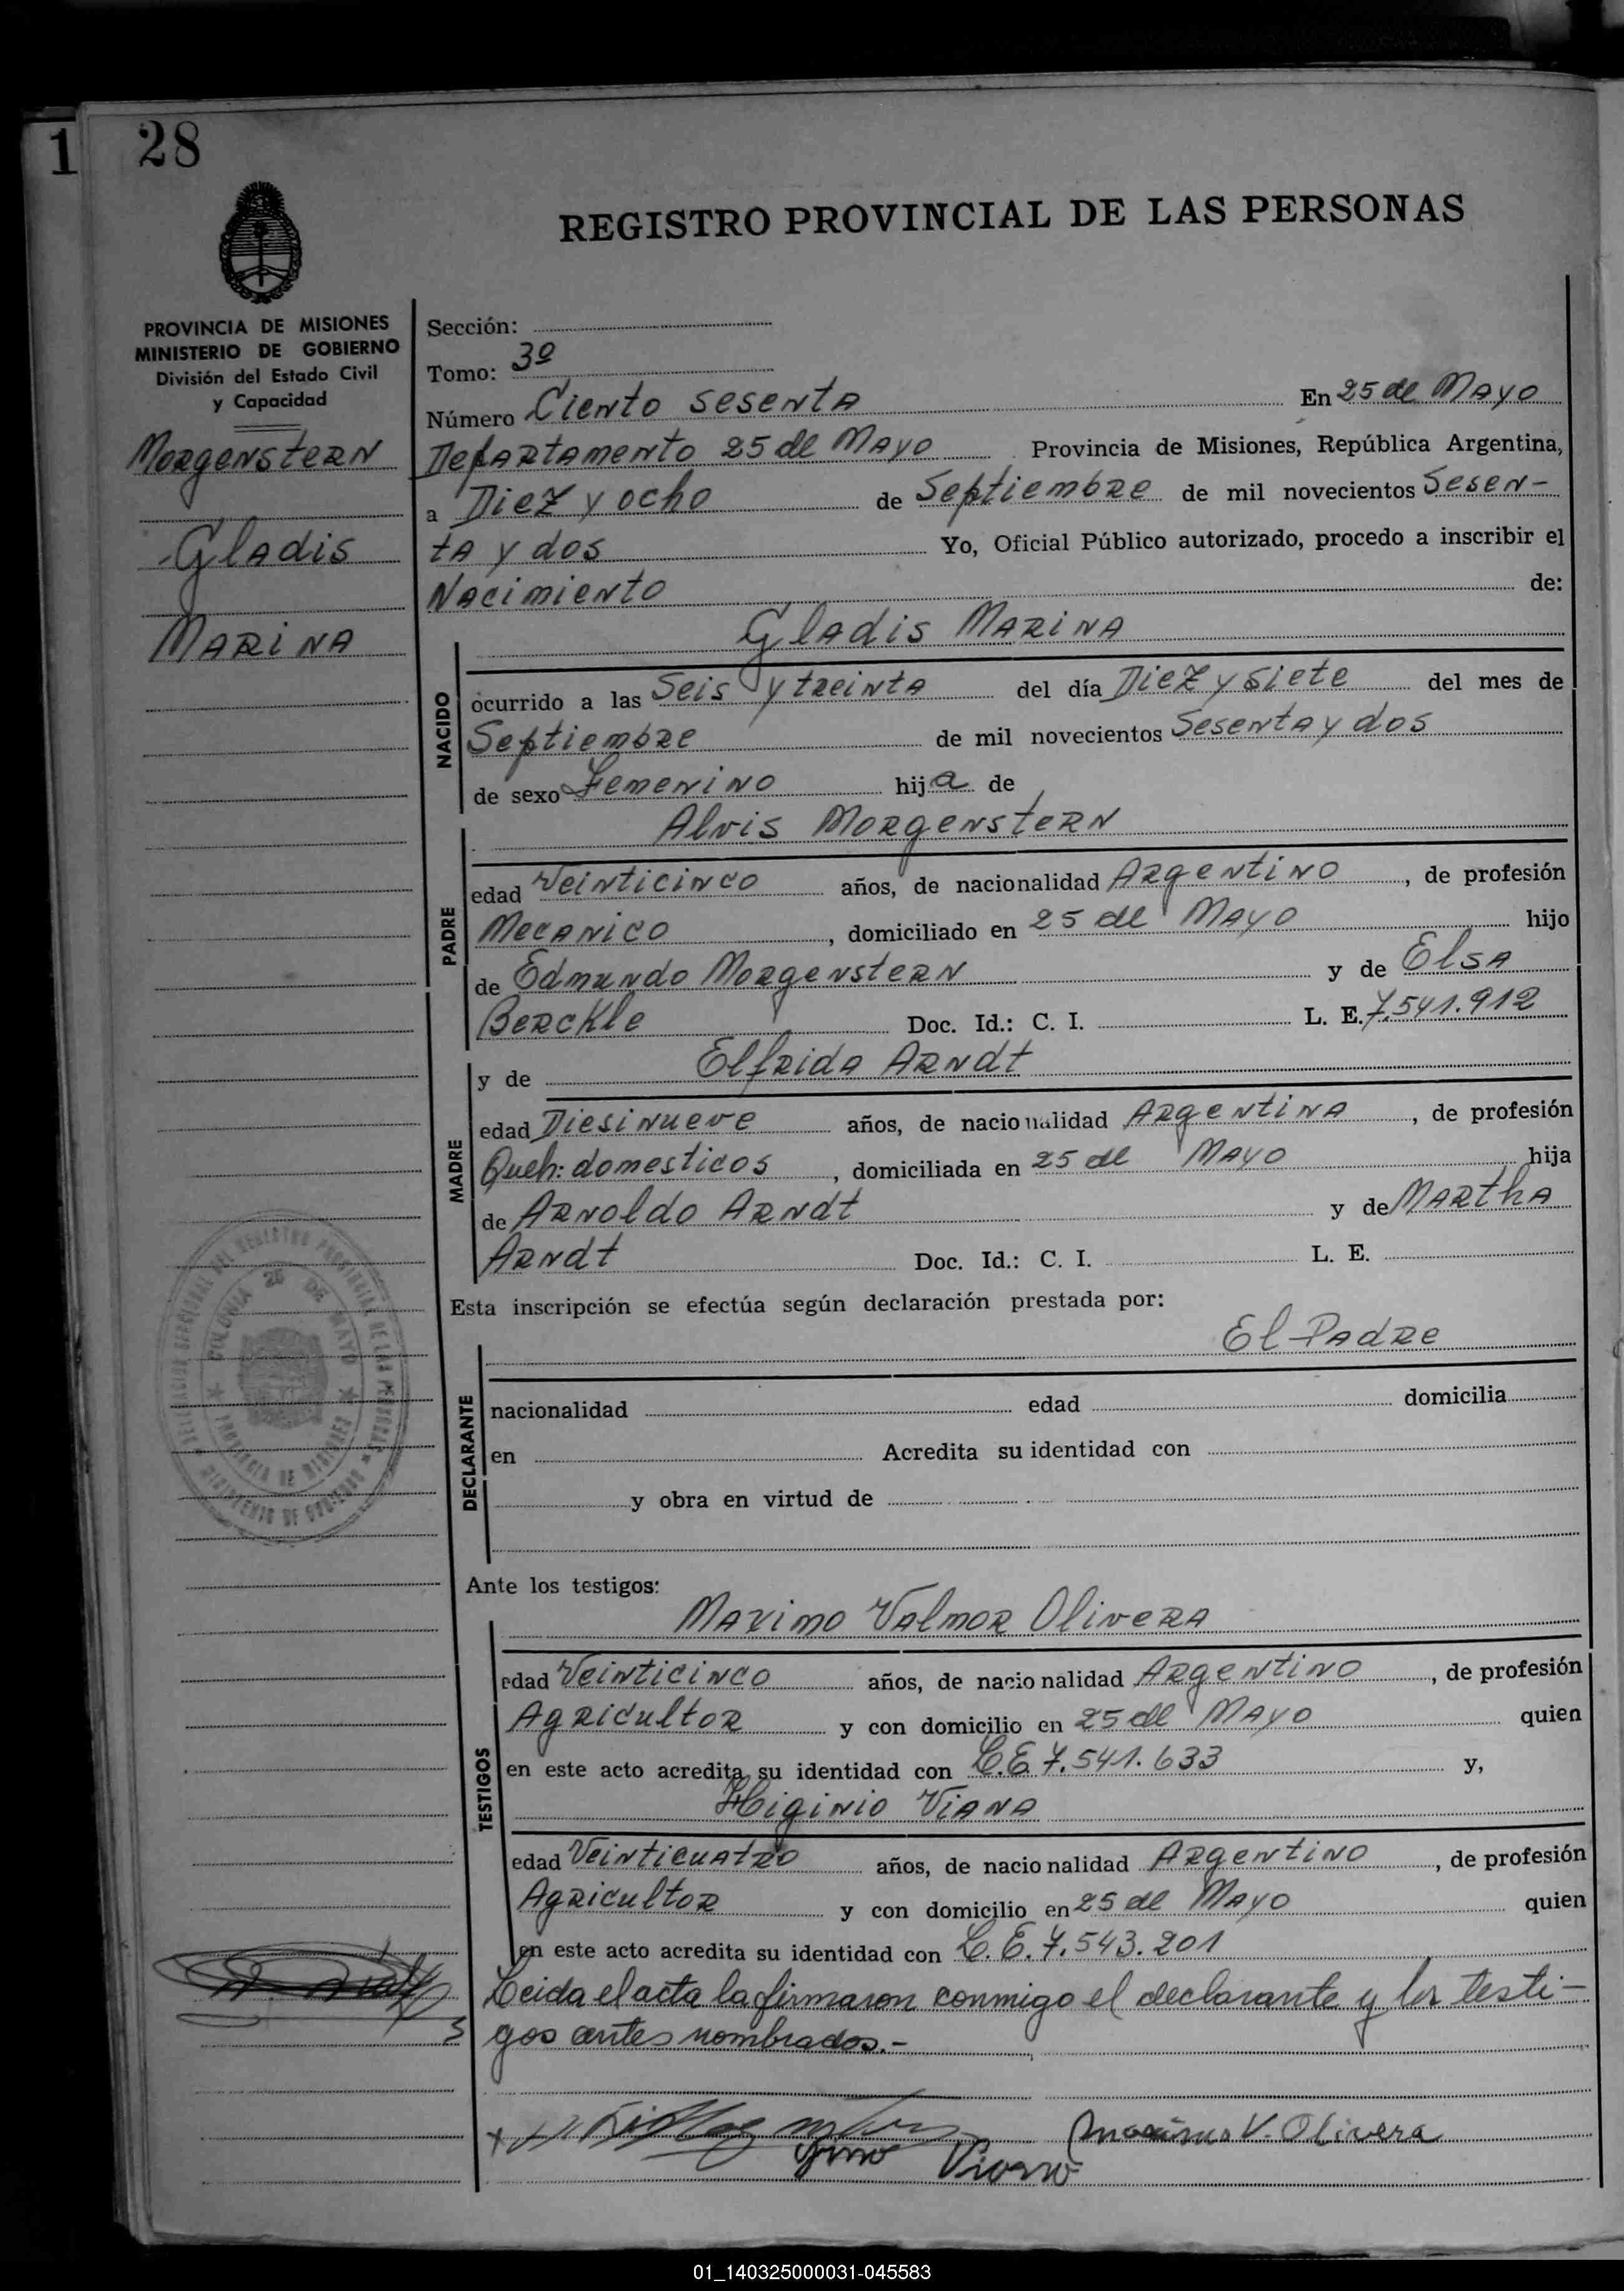 1
28
REGISTRO PROVINCIAL DE LAS PERSONAS
PROVINCIA DE MISIONES
MINISTERIO DE GOBIERNO
División del Estado Civil
y Capacidad
Morgenstern
Gladis
Marina
Sección:
Tomo: 3º
Número Ciento sesenta En 25 de Mayo
Departamento 25 de Mayo Provincia de Misiones, República Argentina,
a Diez y ocho de Septiembre de mil novecientos Sesen-
ta y dos Yo, Oficial Público autorizado, procedo a inscribir el
Nacimiento de:
Gladis Marina
NACIDO
ocurrido a las Seis y treinta del día Diez y siete del mes de
Septiembre de mil novecientos Sesenta y dos
de sexo Femenino hija de
Alvis Morgenstern
PADRE
edad Veinticinco años, de nacionalidad Argentino, de profesión
Mecanico, domiciliado en 25 de Mayo hijo
de Edmundo Morgenstern y de Elsa
Berckle Doc. Id.: C. I. L. E. 7.541.912
y de Elfrida Arndt
MADRE
edad Diesinueve años, de nacionalidad Argentina, de profesión
Queh: domesticos, domiciliada en 25 de Mayo hija
de Arnoldo Arndt y de Martha
Arndt Doc. Id.: C. I. L. E.
Esta inscripción se efectúa según declaración prestada por:
El Padre
DECLARANTE
nacionalidad edad domicilia
en Acredita su identidad con
y obra en virtud de
COLONIA 25 DE MAYO
PROVINCIA DE MISIONES
MINISTERIO DE GOBIERNO
Ante los testigos:
Maximo Valmor Olivera
TESTIGOS
edad Veinticinco años, de nacionalidad Argentino, de profesión
Agricultor y con domicilio en 25 de Mayo quien
en este acto acredita su identidad con L.E. 7.541.633 y,
Higinio Viana
edad Veinticuatro años, de nacionalidad Argentino, de profesión
Agricultor y con domicilio en 25 de Mayo quien
en este acto acredita su identidad con L.E. 7.543.201
Leida el acta la firmaron conmigo el declarante y los testi-
gos antes nombrados.-
Maximo V. Olivera
01_140325000031-045583